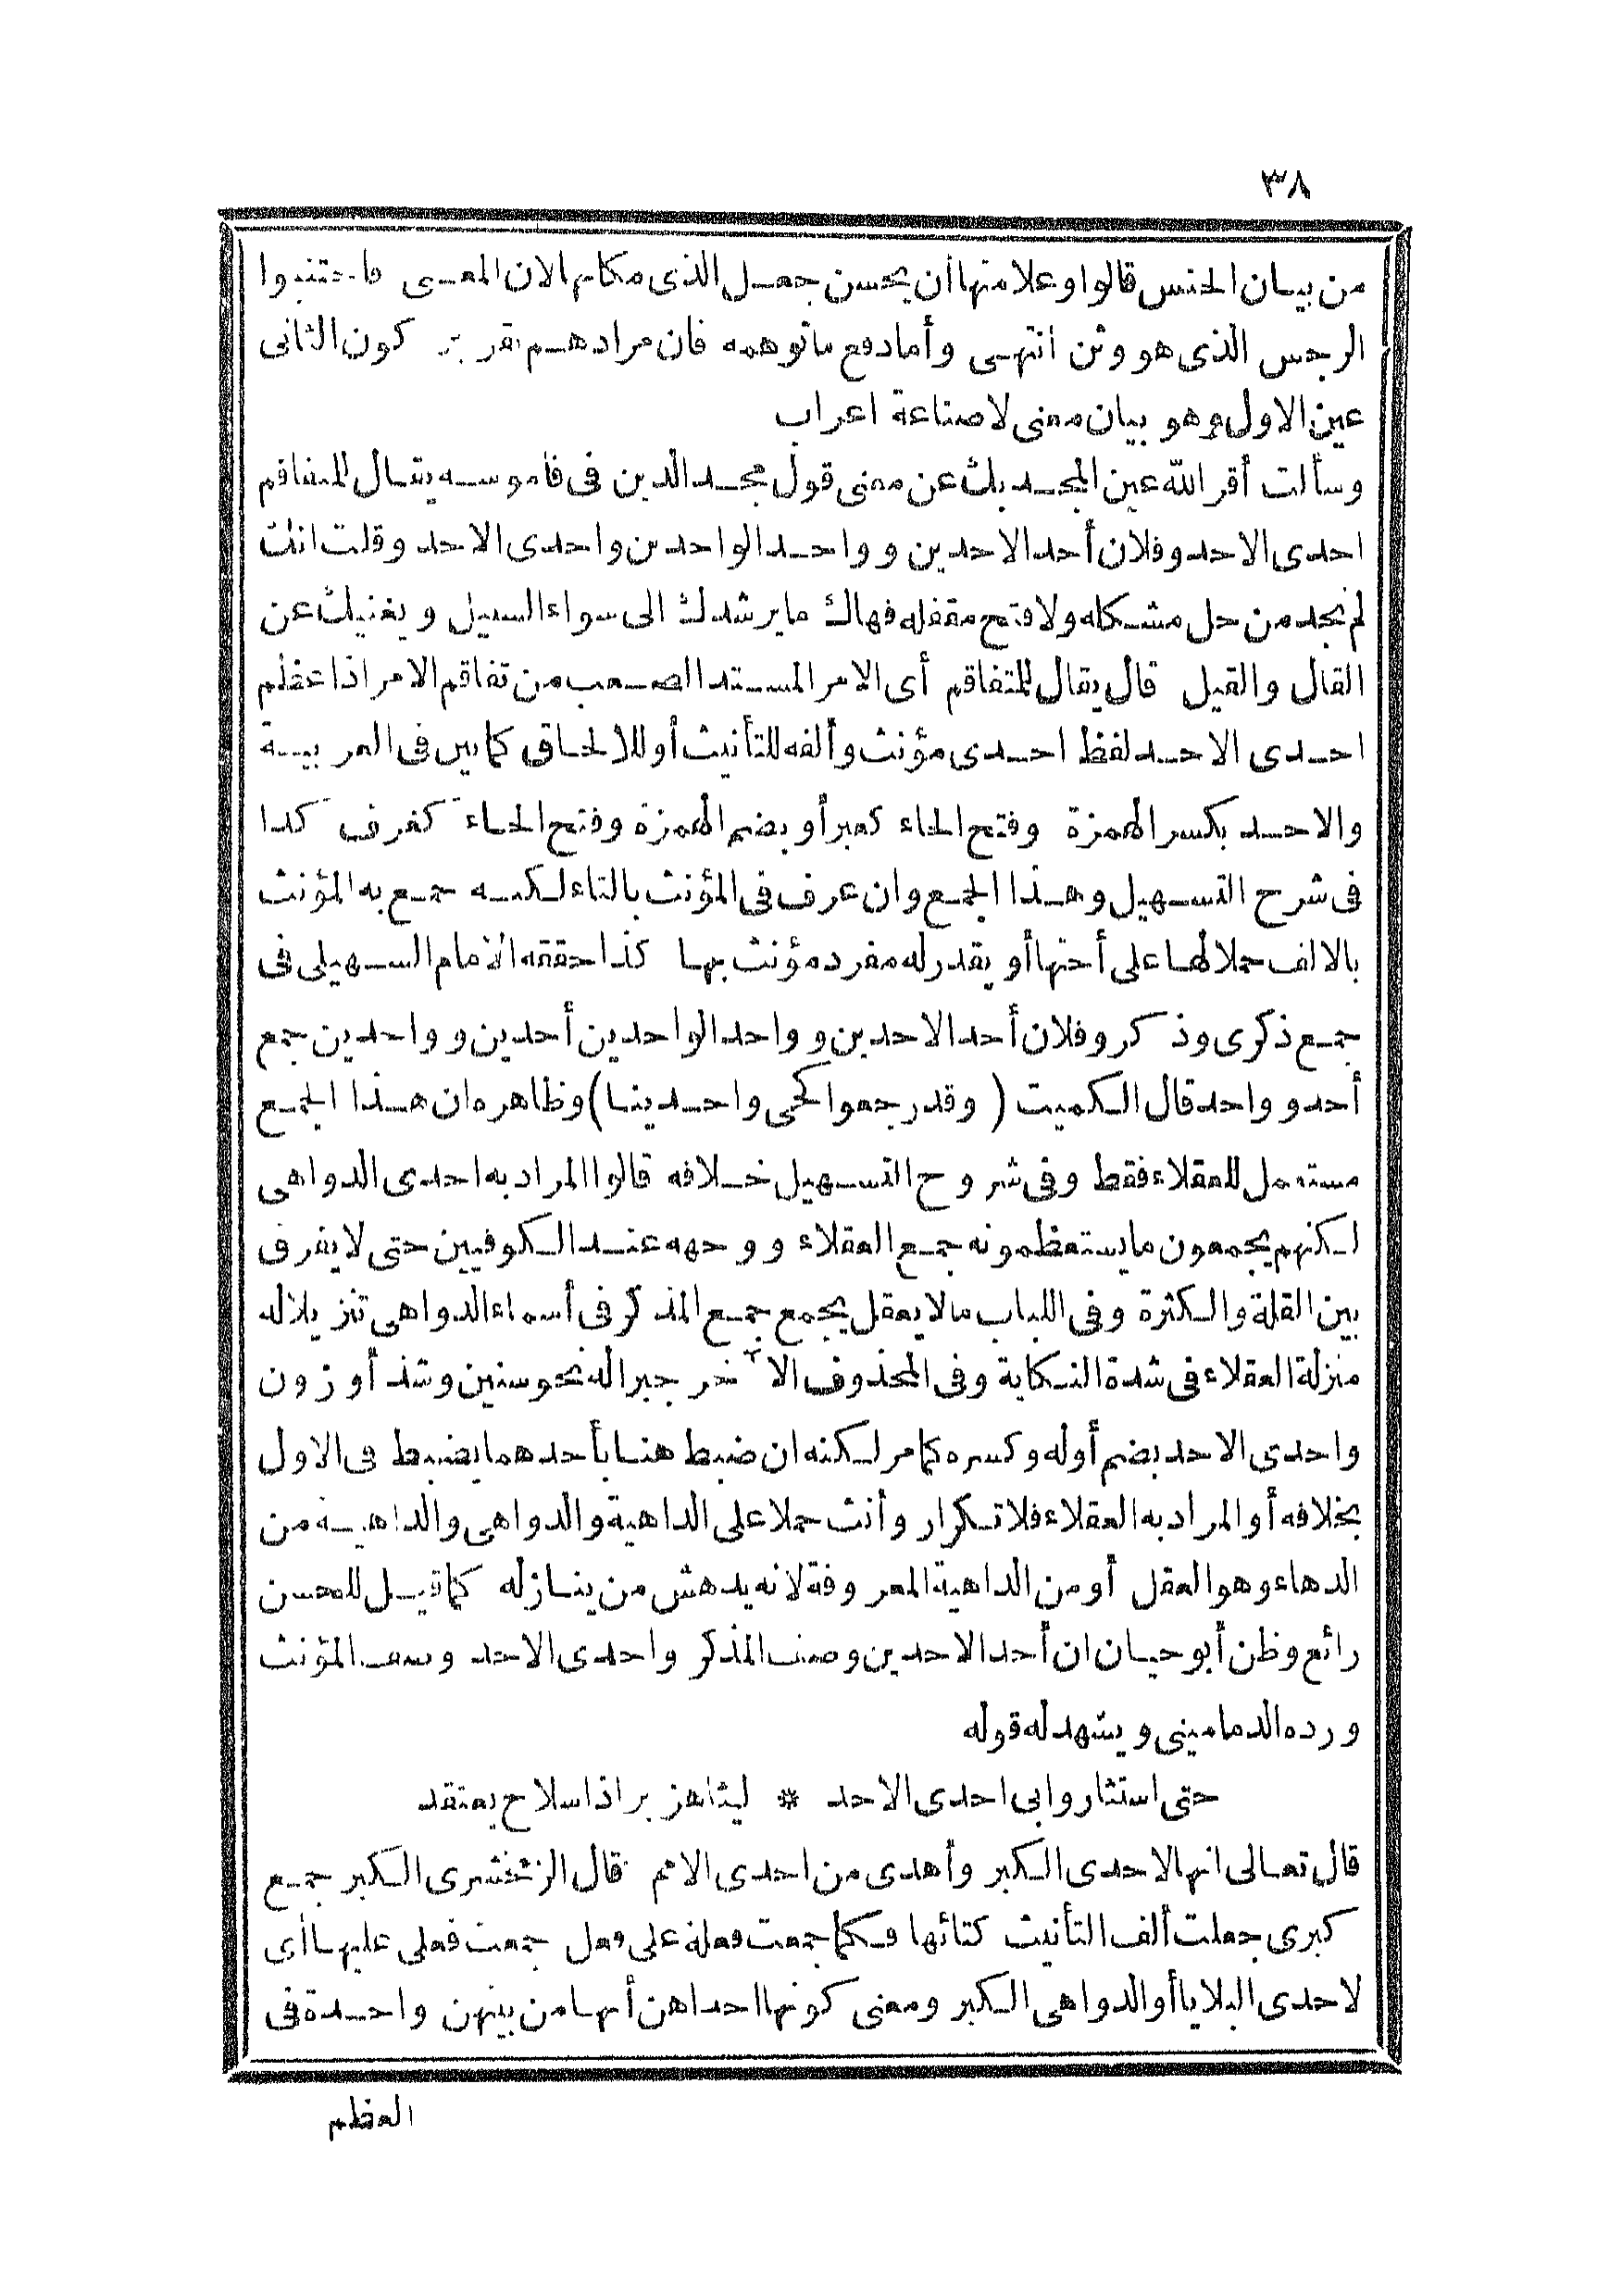 ٣٨
من بيان الجنس قالوا وعلامتها أن يحسن جعل الذى مكانها لان المعنى فاجتنبوا
الرجس الذى هو وثن انتهى وأما دفع ما توهمه فان مرادهم تقرير كون الثانى
عين الاول وهو بيان معنى لا صناعة اعراب
وسألت أقر الله عين المجد بك عن معنى قول مجد الدين فى قاموسه يقال للمتفاقم
احدى الاحد وفلان أحد الاحدين وواحد الواحدين واحدى الاحد وقلت انك
لم تجد من حل مشكله ولا فتح مقفله فهاك ما يرشدك الى سواء السبيل ويغنيك عن
القال والقيل قال يقال للمتفاقم أى الامر المشتد الصعب من تفاقم الامر اذا عظم
احدى الاحد لفظ احدى مؤنث وألفه للتأنيث أو للالحاق كما بين فى العربية
والاحد بكسر الهمزة وفتح الحاء كعبر أو بضم الهمزة وفتح الحاء كغرف كذا
فى شرح التسهيل وهذا الجمع وان عرف فى المؤنث بالتاء لكنه جمع به المؤنث
بالالف حملا لها على أختها أو يقدر له مفرد مؤنث بها كذا حققه الامام السهيلى فى
جمع ذكرى وذكر وفلان أحد الاحدين وواحد الواحدين أحدين وواحدين جمع
أحد وواحد قال الكميت (وقد رجعوا كحى واحدينا) وظاهره ان هذا الجمع
مستعمل للعقلاء فقط وفى شروح التسهيل خلافه قالوا المراد به احدى الدواهى
لكنهم يجمعون ما يستعظمونه جمع العقلاء ووجهه عند الكوفيين حتى لا يفرق
بين القلة والكثرة وفى اللباب ما لا يعقل يجمع جمع المذكر فى أسماء الدواهى تنزيلا له
منزلة العقلاء فى شدة النكاية وفى المحذوف الآخر جبرا له نحو سنين وشذ أوزون
واحدى الاحد بضم أوله وكسره كما مر لكنه ان ضبط هنا بأحدهما يضبط فى الاول
بخلافه أو المراد به العقلاء فلا تكرار وأنث حملا على الداهية والدواهى والداهية من
الدهاء وهو العقل أو من الداهية المعروفة لانه يدهش من ينازله كما قيل للمحسن
رائع وظن أبو حيان ان أحد الاحدين وصف المذكر واحدى الاحد وصف المؤنث
ورده الدمامينى ويشهد له قوله
حتى استثاروا بى احدى الاحد * ليثا هزبرا ذا سلاح يعتقد
قال تعالى انها لاحدى الكبر وأهدى من احدى الامم قال الزمخشرى الكبر جمع
كبرى جعلت ألف التأنيث كتائها فكما جمعت فعلة على فعل جمعت فعلى عليها أى
لاحدى البلايا أو الدواهى الكبر ومعنى كونها احداهن أنها من بينهن واحدة فى
العظم